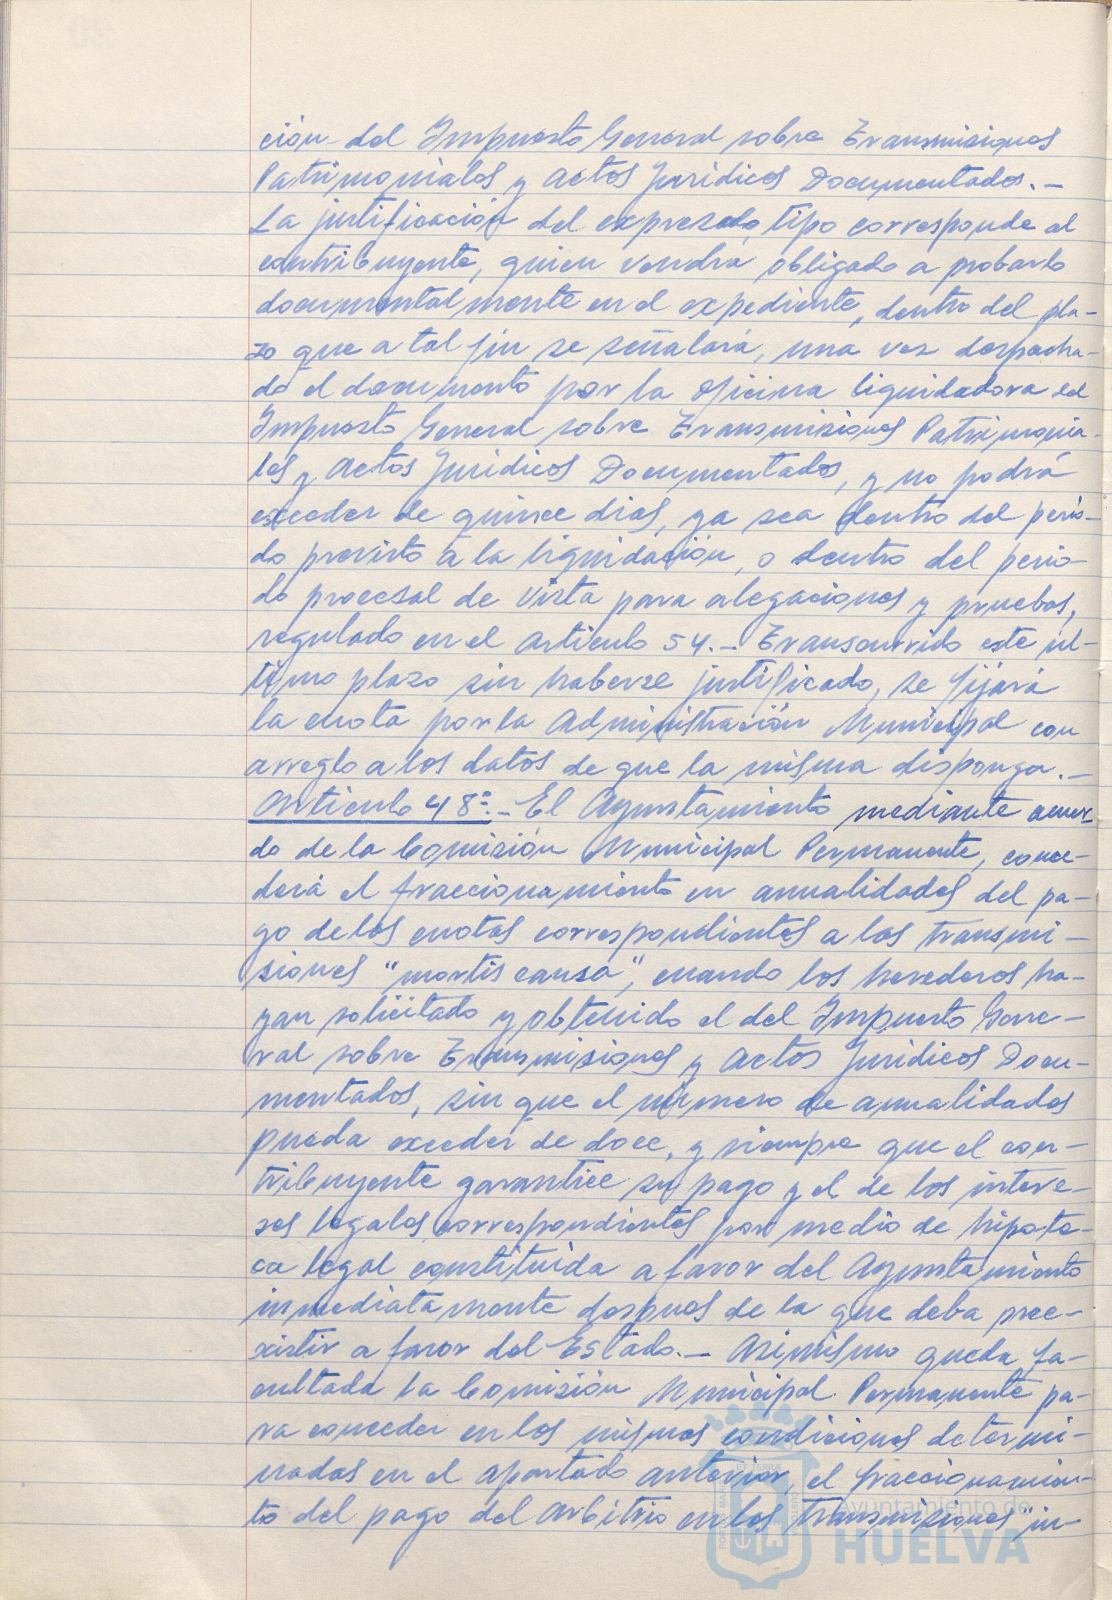 ción del Impuesto General sobre Transmisiones
Patrimoniales y Actos Jurídicos Documentados.-
La justificación del expresado tipo corresponde al
contribuyente, quien vendrá obligado a probarlo
documentalmente en el expediente, dentro del pla-
zo que a tal fin se señalará, una vez despacha-
do el documento por la Oficina liquidadora del
Impuesto General sobre Transmisiones Patrimonia-
les y Actos Jurídicos Documentados, y no podrá
exceder de quince dias, ya sea dentro del perío-
do previsto a la liquidación, o dentro del perio-
do procesal de vista para alegaciones y pruebas,
regulado en el artículo 54.- Transcurrido este úl-
timo plazo sin haberse justificado, se fijará
la cuota por la Administración Municipal con
arreglo a los datos de que la misma disponga.-
Artículo 48º.- El Ayuntamiento mediante acuer-
do de la Comisión Municipal Permanente, conce-
derá el fraccionamiento en anualidades del pa-
go de las cuotas correspondientes a las transmi-
siones "mortis causa", cuando los herederos ha-
yan solicitado y obtenido el del Impuesto Gene-
ral sobre Transmisiones y Actos Jurídicos Docu-
mentados, sin que el número de anualidades
pueda exceder de doce, y siempre que el con-
tribuyente garantice su pago y el de los intere-
ses legales correspondientes por medio de hipote-
ca legal constituida a favor del Ayuntamiento
inmediatamente despues de la que deba pree-
xistir a favor del Estado.- Asimismo queda fa-
cultada la Comisión Municipal Permanente pa-
ra conceder en las mismas condiciones determi-
nadas en el apartado anterior, el fraccionamien-
to del pago del arbitrio en las transmisiones "in-
Ayuntamiento de
HUELVA